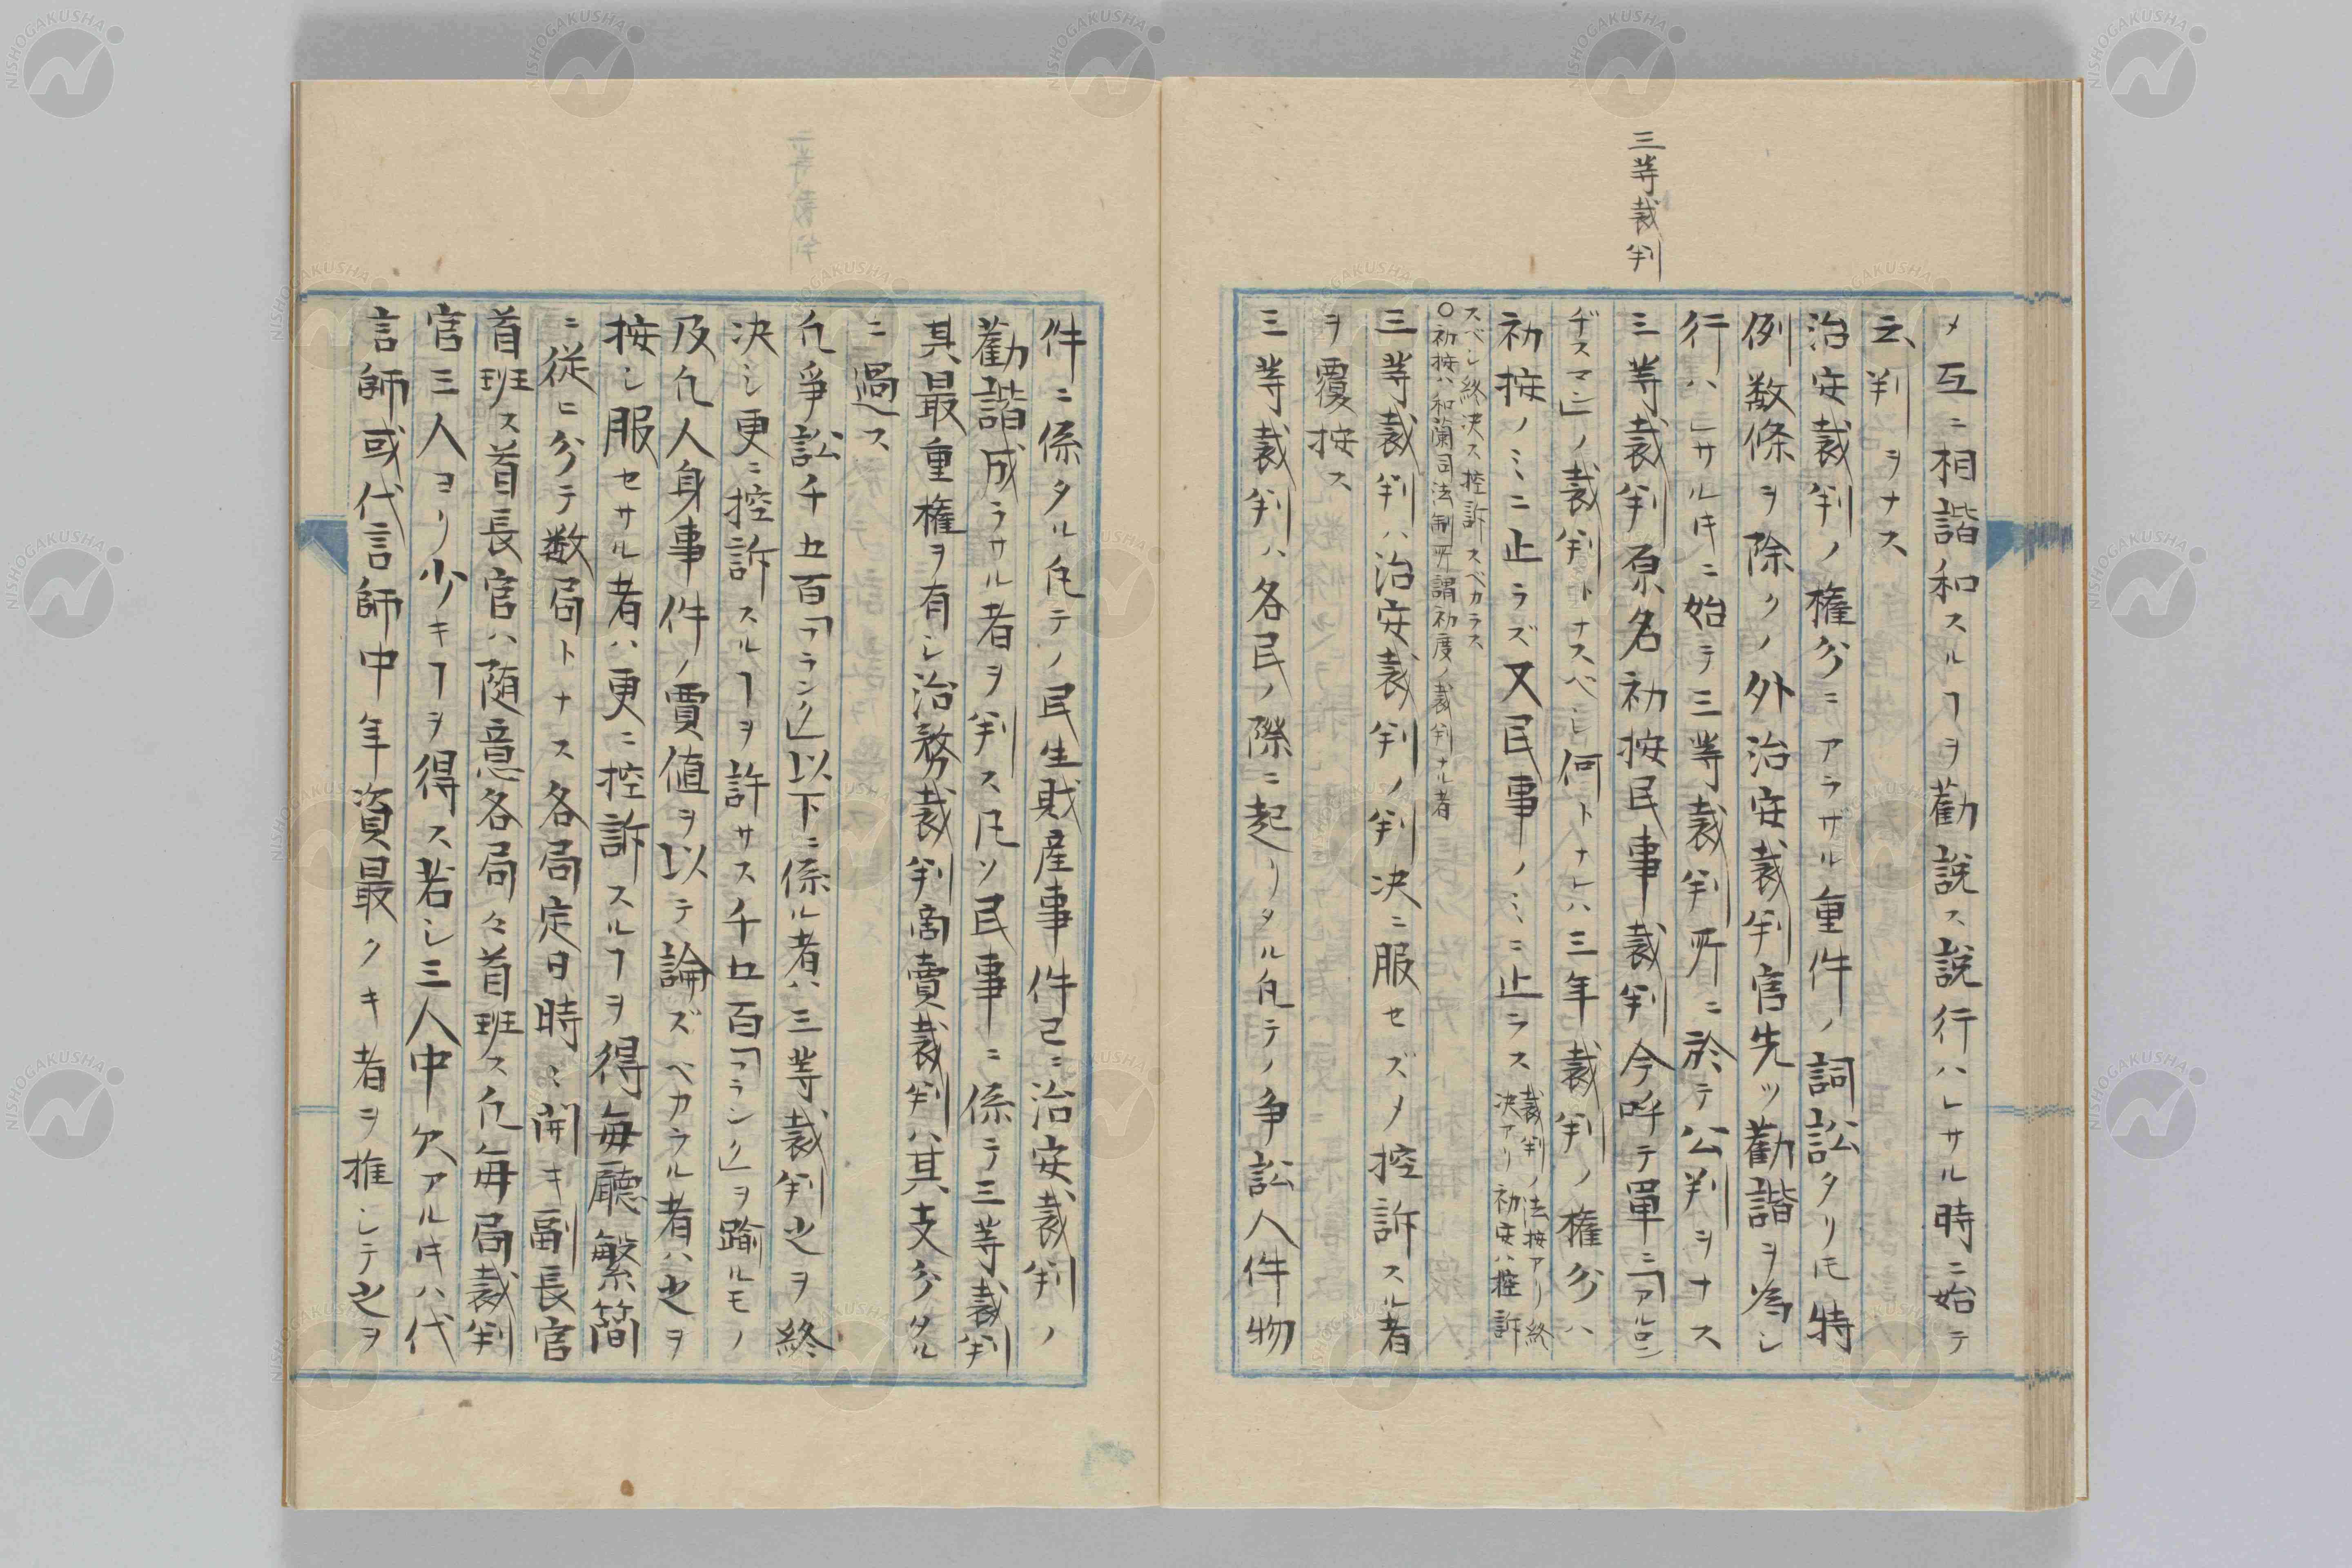 三等裁判
メ互ニ相諧和スルヿヲ勸説ス説行ハレサル時ニ始テ
云判ヲナス
治安裁判ノ権分ニアラザル重件ノ詞訟タリ𪜈特
例数條ヲ除クノ外治安裁判官先ッ勸諧ヲ為シ
行ハレサル𪜈ニ始テ三等裁判所ニ於テ公判ヲナス
三等裁判原名初按民事裁判今呼テ單ニ「アルロン
ヂスマン」ノ裁判トナスベシ何トナレハ三年裁判ノ權分ハ
初按ノミニ止ラズ又民事ノミニ止ラス裁判ノ法按アリ終
決アリ初安ハ控訴
スベシ終決ス控訴スベカラス
○初按ハ和蘭司法制所謂初度ノ裁判ナル者
三等裁判ハ治安裁判ノ判决ニ服セズメ控訴スル者
ヲ覆按ス
三等裁判ハ各民ノ際ニ起リタル凢テノ争訟人件物
件ニ係タル凢テノ民生財産事件已ニ治安裁判ノ
勸諧成ラサル者ヲ判ス凡ソ民事ニ係テ三等裁判
其最重権ヲ有シ治務裁判啇賣裁判ハ其支分タル
ニ過ス
凢爭訟千五百「フランク」以下ニ係ル者ハ三等裁判之ヲ終
决シ更ニ控訴スルヿヲ許サス千五百「フランク」ヲ踰ルモノ
及凢人身事件ノ賈値ヲ以テ論ズベカラル者ハ之ヲ
按シ服セサル者ハ更ニ控訴スルヿヲ得毎廳繁簡
ニ従ヒ分テ数局トナス各局定日時ニ開キ副長官
首班ス首長官ハ随意各局ヲ首班ス凢毎局裁判
官三人ヨリ少キヿヲ得ス若シ三人中欠アル𪜈ハ代
言師或代言師中年資最クキ者ヲ推シテ之ヲ